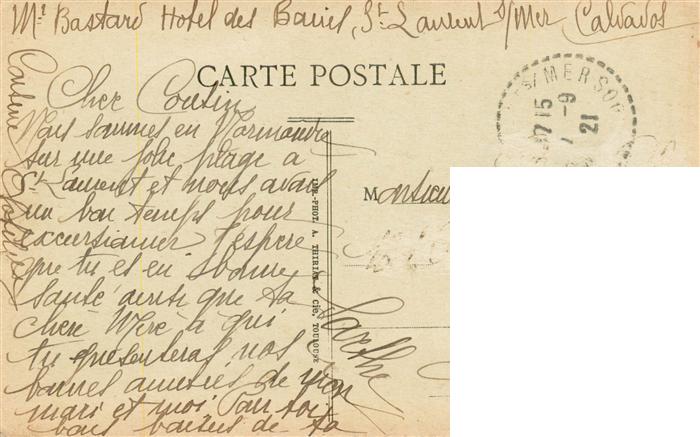 Mr Bastard Hotel des Bains, St Laurent s/Mer Calvados
CARTE POSTALE
Cher Cousin
Nous sommes en Normandie
sur une jolie plage a
St Laurent et nous avons
un bon temps pour
excursionner J'espere
que tu es en bonne
santé ainsi que ta
chere Mère à qui
tu présenteras nos
bonnes amitiés de mon
mari et moi
bons baisers de ta
Cousine
S/MERSO
17 15
7 - 9
21
IMP.-PHOT. A. THIRIAT & Cie, TOULOUSE
Monsieu
Sarthe